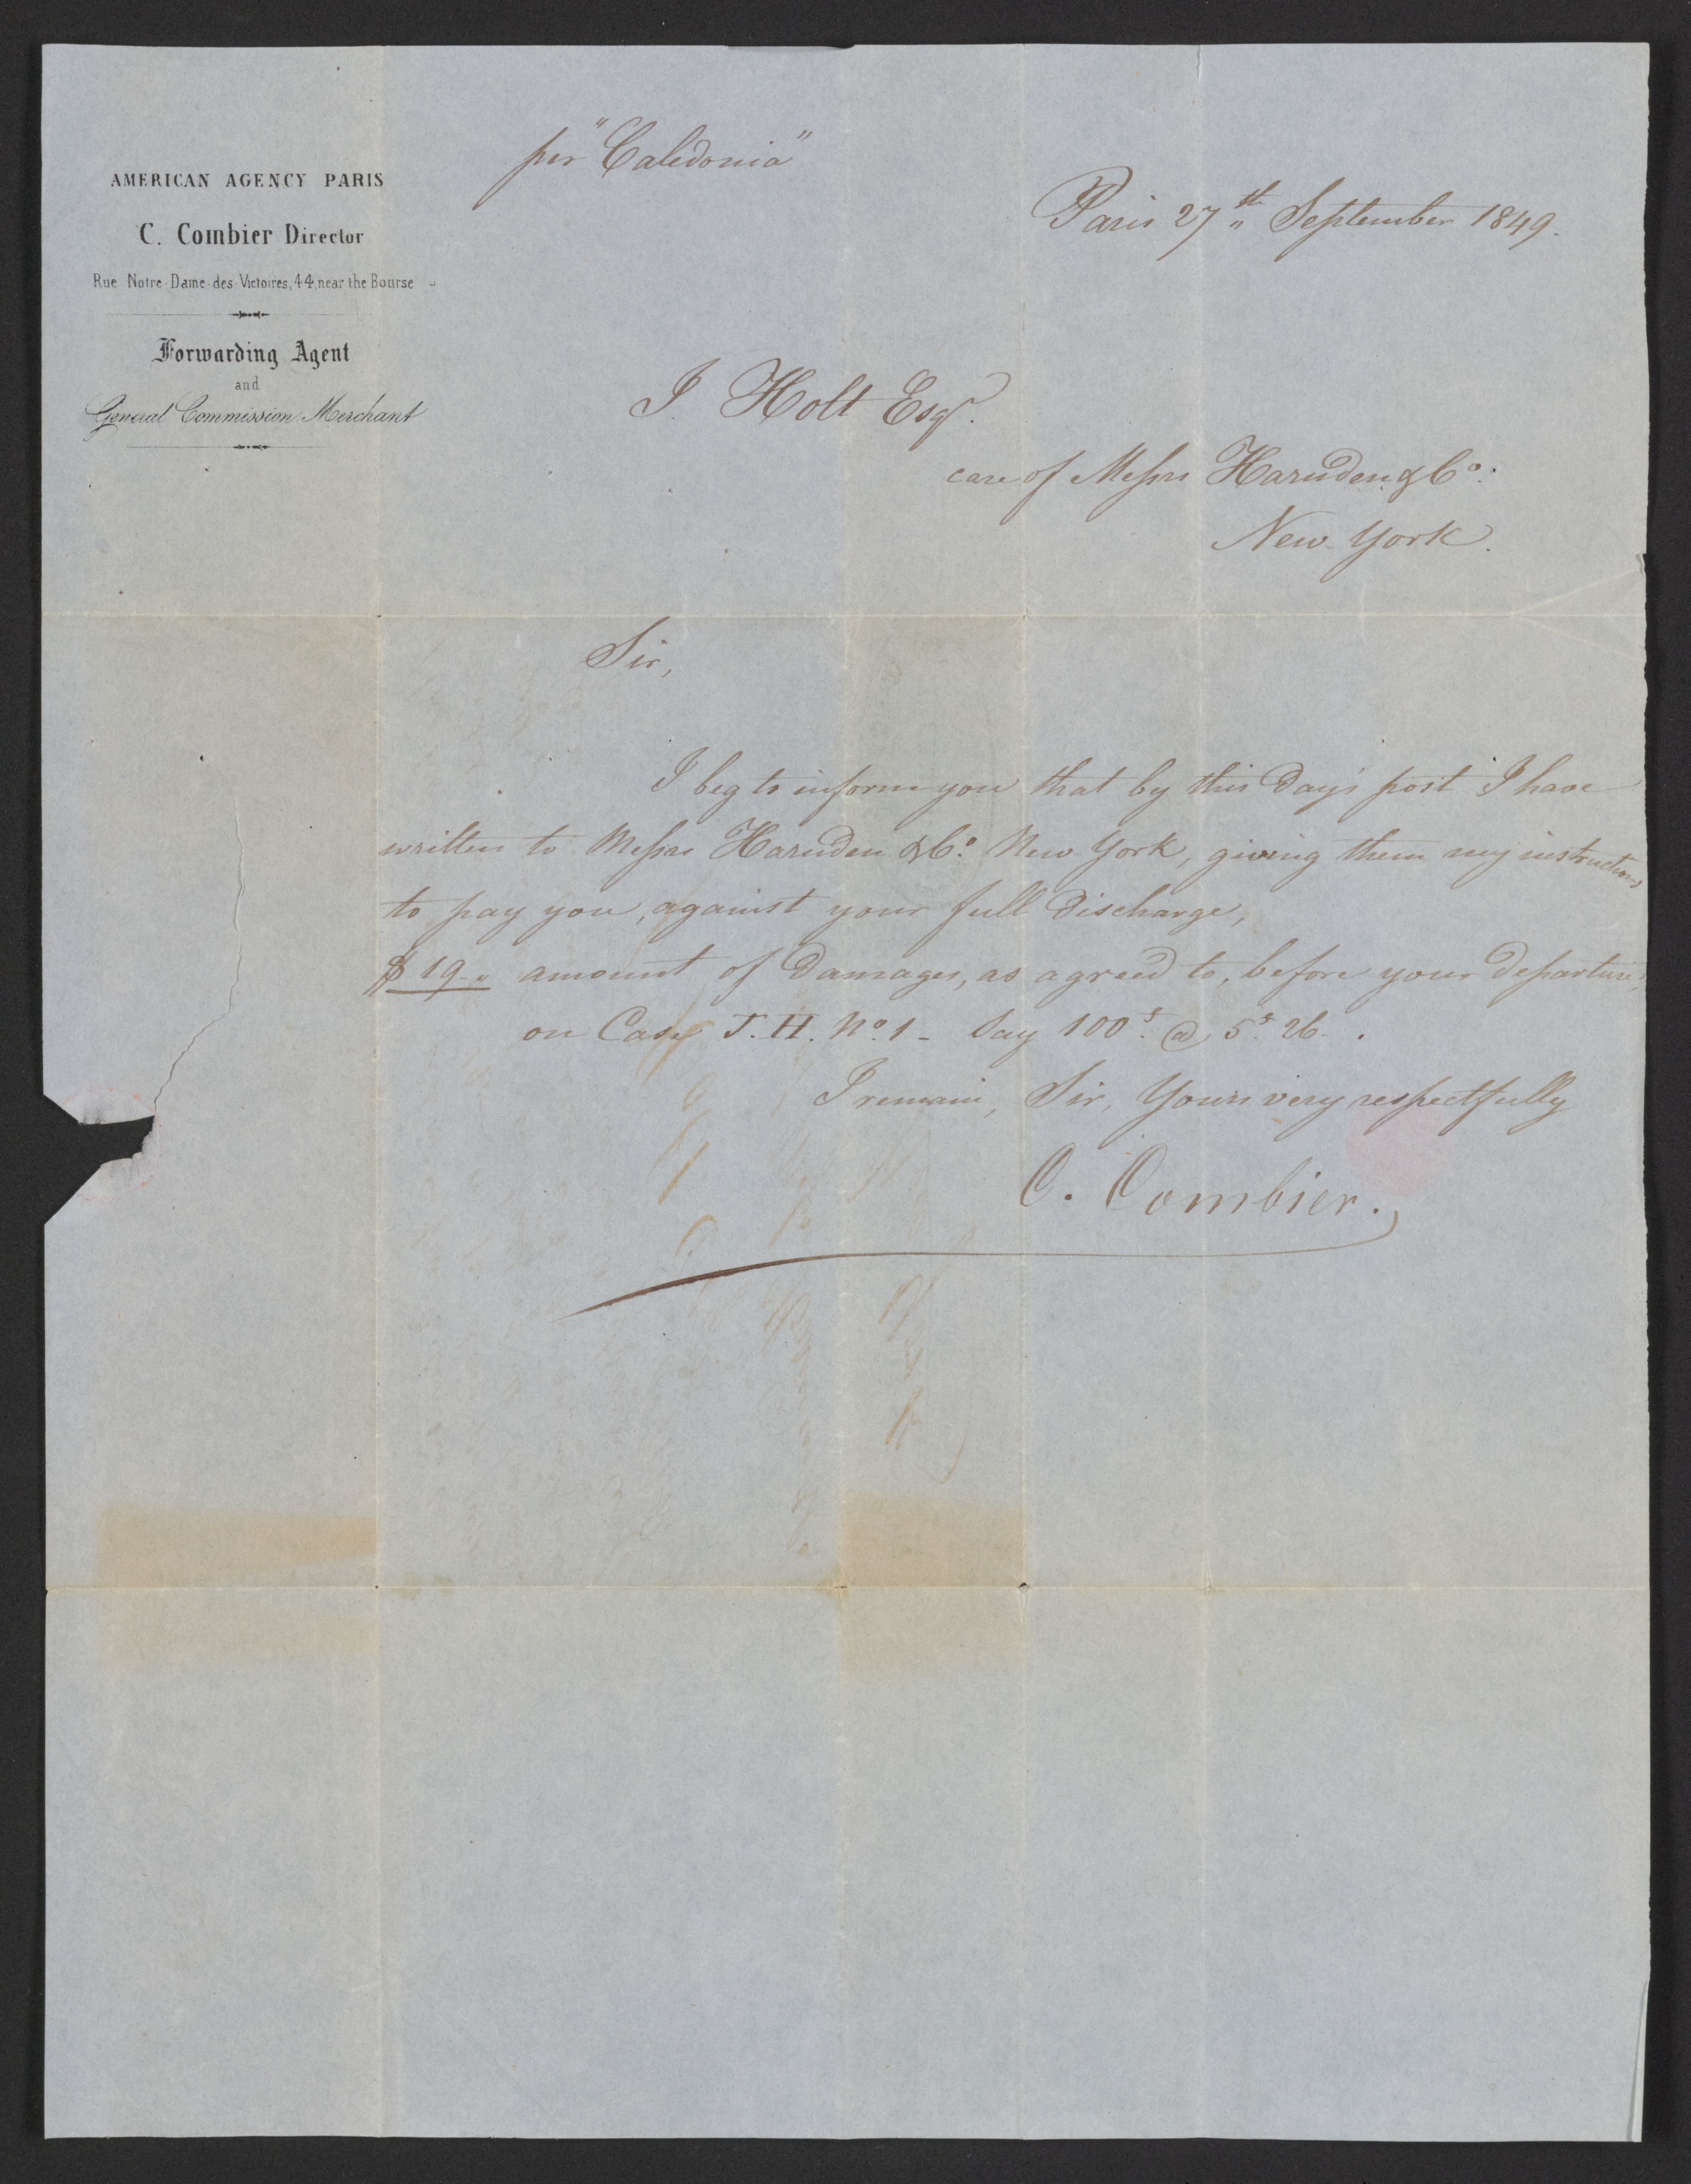 AMERICAN AGENCY PARIS
C. Combier Director
Rue Notre-Dame-des-Victoires, 44, near the Bourse
Forwarding Agent
and
General Commission Merchant
per "Caledonia"
Paris 27th September 1849.
J. Holt Esqr.
care of Messrs Harnden & Co.
New York.
Sir,
I beg to inform you that by this day's post I have
written to Messrs Harnden & Co. New York, giving them my instructions
to pay you, against your full discharge,
$ 19 - " amount of damages, as agreed to, before your departure,
on Case J. H. No. 1 - Say 100 f. @ 5 f. 26 - .
I remain, Sir, Yours very respectfully
C. Combier.